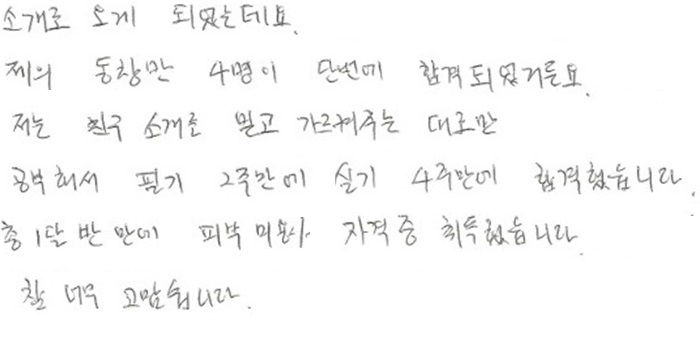 소개로 오게 되었는데요.
저의 동창만 4명이 단번에 합격되었거든요.
저는 친구 소개로 믿고 가르쳐주는 대로만
공부해서 필기 2주만에 실기 4주만에 합격했습니다.
총 1달 반 만에 피부 미용사 자격증 취득했습니다.
참 너무 고맙습니다.